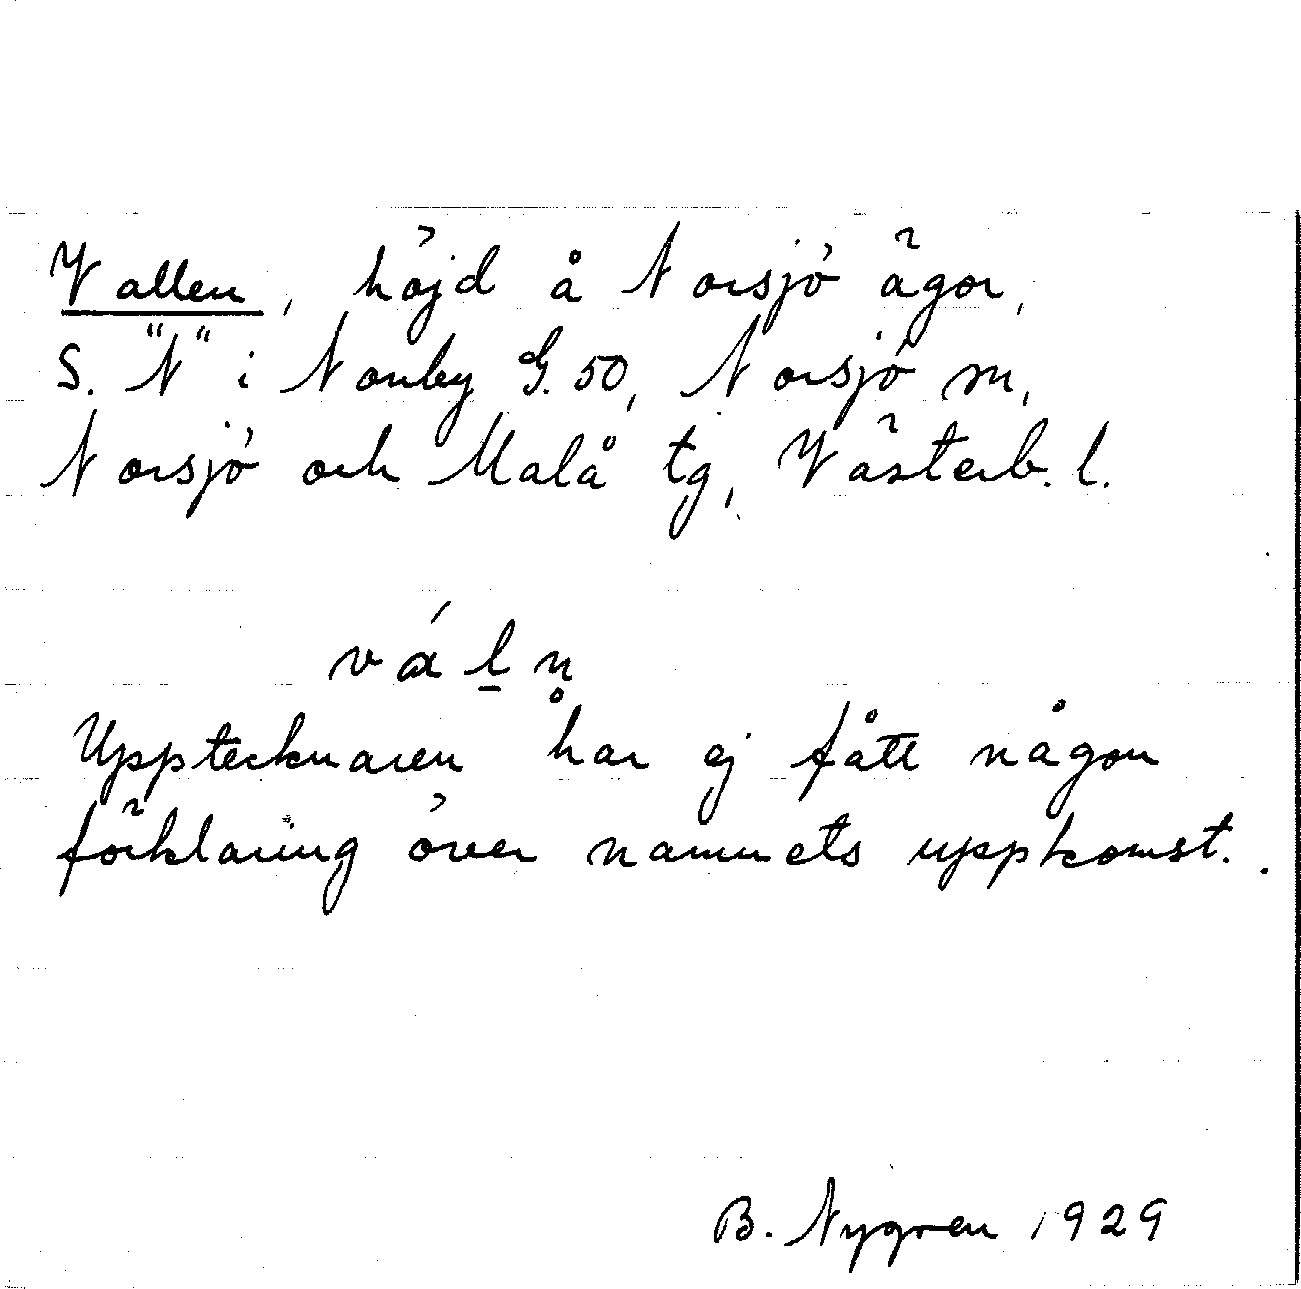 Vallen, höjd å Norsjö ägor,
S. "N" i Norrby G. 50, Norsjö sn,
Norsjö och Malå tg, Västerb. l.
vál̠n̥
Upptecknaren har ej fått någon
förklaring över namnets uppkomst.
B. Nygren 1929